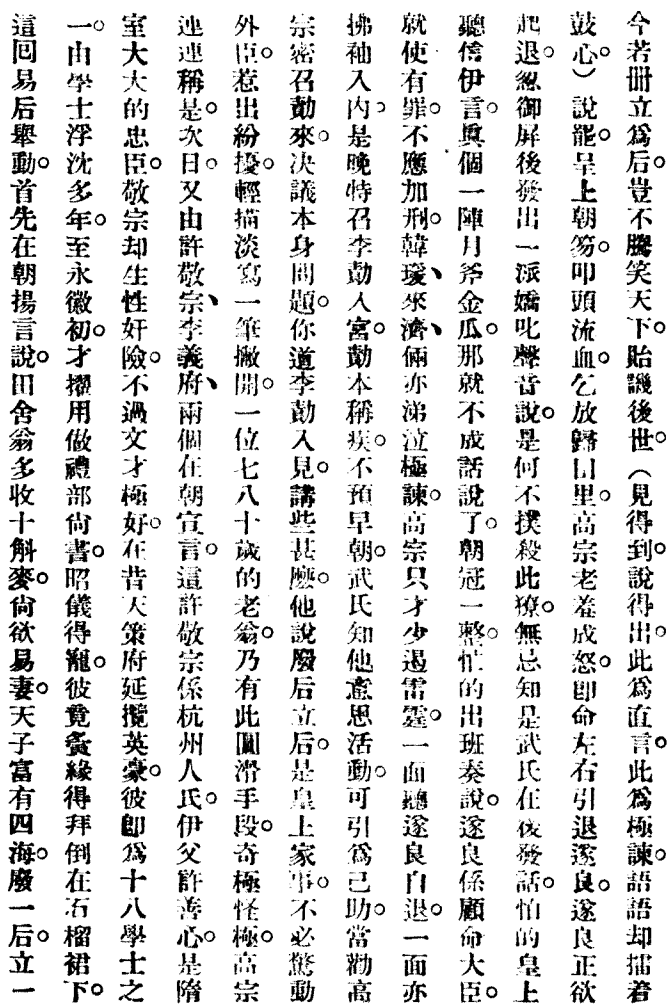 今若冊立爲后。豈不騰笑天下貽譏後世（見得到說得出。此爲直言。此爲極諫。語語却搐着
鼓心。）說罷呈上朝笏。叩頭流血。乞放歸田里。高宗老羞成怒。卽命左右引退遂良。遂良正欲
起退。忽御屛後發出一派嬌叱聲音。說是何不撲殺此獠。無忌知是武氏在後發話。怕的皇上
聽信伊言。眞個一陣月斧金瓜。那就不成話說了。朝冠一整。忙的出班奏說。遂良係顧命大臣。
就使有罪。不應加刑。韓瑗、來濟、倆亦涕泣極諫。高宗只才少遏雷霆。一面聽遂良自退。一面亦
拂袖入內。是晚特召李勣入宮。勣本稱疾。不預早朝。武氏知他意思活動。可引爲已助。當勸高
宗密召勣來。决議本身問題。你道李勣入見。講些甚麽。他說廢后立后。是皇上家事。不必驚動
外臣。惹出紛擾。輕描淡寫一筆撇開。一位七八十歲的老翁。乃有此圓滑手段。奇極怪極。高宗
連連稱是。次日。又由許敬宗、李義府、兩個在朝宣言。這許敬宗係杭州人氏。伊父許善心。是隋
室大大的忠臣。敬宗却生性奸險。不過文才極好。在昔天策府延攬英豪。彼卽爲十八學士之
一。由學士浮沈多年。至永徽初。才擢用做禮部尙書。昭儀得寵。彼竟夤緣得拜倒在石榴裙下。
這回易后舉動。首先在朝揚言說田舍翁多收十斛麥。尙欲易妻。天子富有四海。廢一后。立一